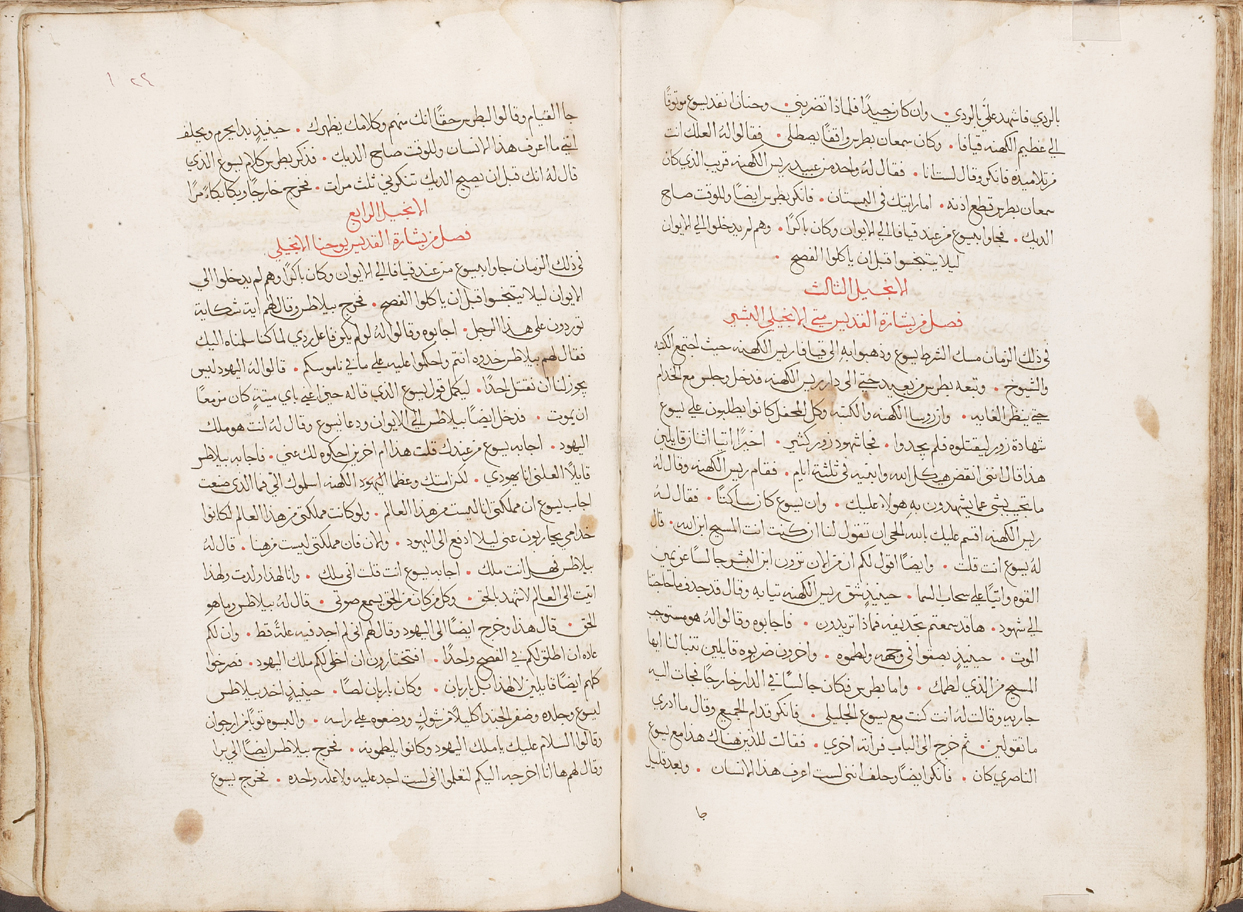 بالردي فاشهد علي بالردي • وان كان جيدًا فلماذا تضربني • وحنان انفد يسوع موتوقًا
الي عظيم الكهنه قيافا • وكان سمعان بطرس واقفًا يصطلي • فقالوا له العلك انت
من تلاميده فانكر وقال لست انا • فقال له واحد من عبيد ريس الكهنه قريب الذي كان
سمعان بطرس قطع ادنه • اما رايتك في البستان • فانكر بطرس ايضًا وللوقت صاح
الديك • فجاوا بيسوع من عند قيافا الي الايوان وكان باكرًا • وهم لم يدخلوا الي الايوان
ليلا يتنجسوا قبل ان ياكلوا الفصح •
الانجيل التالث
فصل من بشارة القديس متي الانجيلي البشير
في ذلك الزمان مسك الشرط يسوع ودهبوا به الي قيافا ريس الكهنه حيث اجتمع الكتبه
والشيوخ • وتبعه بطرس من بعيد حتي الي دار ريس الكهنه فدخل وجلس مع الخدام
حتي ينظر الغايه • وان روسا الكهنه والكتبه وكل المحفل كانوا يطلبون علي يسوع
شهادة زور ليقتلوه فلم يجدوا • فجا شهود زور كتير • اخيرًا اتيا اتنان قايلين
هدا قال انني انقض هيكل الله وابنيه في تلتة ايام • فقام ريس الكهنه وقال له
ما تجيب بشي عما يشهدون به هولاء عليك • وان يسوع كان ساكتًا • فقال له
ريس الكهنه اقسم عليك بالله الحي ان تقول لنا ان كنت انت المسيح ابن الله • قال
له يسوع انت قلت • وايضًا اقول لكم ان من الان ترون ابن البشر جالسًا عن يمين
القوه واتيًا علي سحاب السما • حينيدٍ شق ريس الكهنه تيابه وقال قد جدف ما حاجتنا
الي شهود • ها قد سمعتم تجديفه فماذا تريدون • فاجابوه وقالوا له هو مستوجب
الموت • حينيدٍ بصقوا في وجهه ولطموه • واخرون ضربوه قايلين تنبا لنا ايها
المسيح من الذي لطمك • واما بطرس فكان جالسًا في الدار خارجًا فجات اليه
جاريه وقالت له انت كنت مع يسوع الجليلي • فانكر قدام الجميع وقال ما ادري
ما تقولين • ثم خرج الي الباب فراته اخري • فقالت للذين هناك هدا مع يسوع
الناصري كان • فانكر ايضًا وحلف انني لست اعرف هدا الانسان • وبعد قليل
جا
١٢٩
جا القيام وقالوا لبطرس حقًا انك منهم وكلامك يظهرك • حينيدٍ بدا يحرم ويحلف
انني ما اعرف هدا الانسان وللوقت صاح الديك • فدكر بطرس كلام يسوع الذي
قال له انك قبل ان يصيح الديك تنكرني تلت مرات • فخرج خارجًا وبكا بكاءً مرًا
الانجيل الرابع
فصل من بشارة القديس يوحنا الانجيلي
في ذلك الزمان جاوا بيسوع من عند قيافا الي الايوان وكان باكرًا وهم لم يدخلوا الي
الايوان ليلا يتنجسوا قبل ان ياكلوا الفصح • فخرج بيلاطس وقال لهم اية شكاية
توردون علي هدا الرجل • اجابوه وقالوا له لو لم يكن فاعل ردي لما كنا سلمناه اليك
فقال لهم بيلاطس خدوه انتم واحكموا عليه علي ما في ناموسكم • قالوا له اليهود ليس
يجوز لنا ان نقتل احدًا • ليكمل قول يسوع الذي قاله حين اعني باي ميتةٍ كان مزمعًا
ان يموت • فدخل ايضًا بيلاطس الي الايوان ودعا يسوع وقال له انت هو ملك
اليهود • اجابه يسوع من عندك قلت هدا ام اخرين احكوه لك عني • فاجابه بيلاطس
قايلًا العلني انا يهودي • لكن امتك وعظما اليهود الكهنه اسلموك الي فما الذي صنعت
اجاب يسوع ان مملكتي انا ليست من هدا العالم • ولو كانت مملكتي من هدا العالم لكانوا
خدامي يحاربون عني ليلا ادفع الي اليهود • والان فان مملكتي ليست من هنا • قال له
بيلاطس فهل انت ملك • اجابه يسوع انت قلت اني ملك • وانا لهدا ولدت ولهدا
اتيت الي العالم لاشهد بالحق • وكل من كان من الحق يسمع صوتي • قال له بيلاطس وما هو
الحق • قال هدا وخرج ايضًا الي اليهود وقال لهم اني لم اجد فيه علةً قط • وان لكم
عاده ان اطلق لكم في الفصح واحدًا • افتختارون ان اخلي لكم ملك اليهود • فصرخوا
كلهم ايضًا قايلين لا لهدا بل باربان • وكان باربان لصًا • حينيدٍ اخد بيلاطس
ليسوع وجلده وضفر الجند اكليلًا من شوك ووضعوه علي راسه • والبسوه توبًا من ارجوان
وقالوا السلام عليك يا ملك اليهود وكانوا يلطمونه • فخرج بيلاطس ايضًا الي برا
وقال لهم ها انا اخرجه اليكم لتعلموا انني لست اجد عليه ولا عله واحده • فخرج يسوع